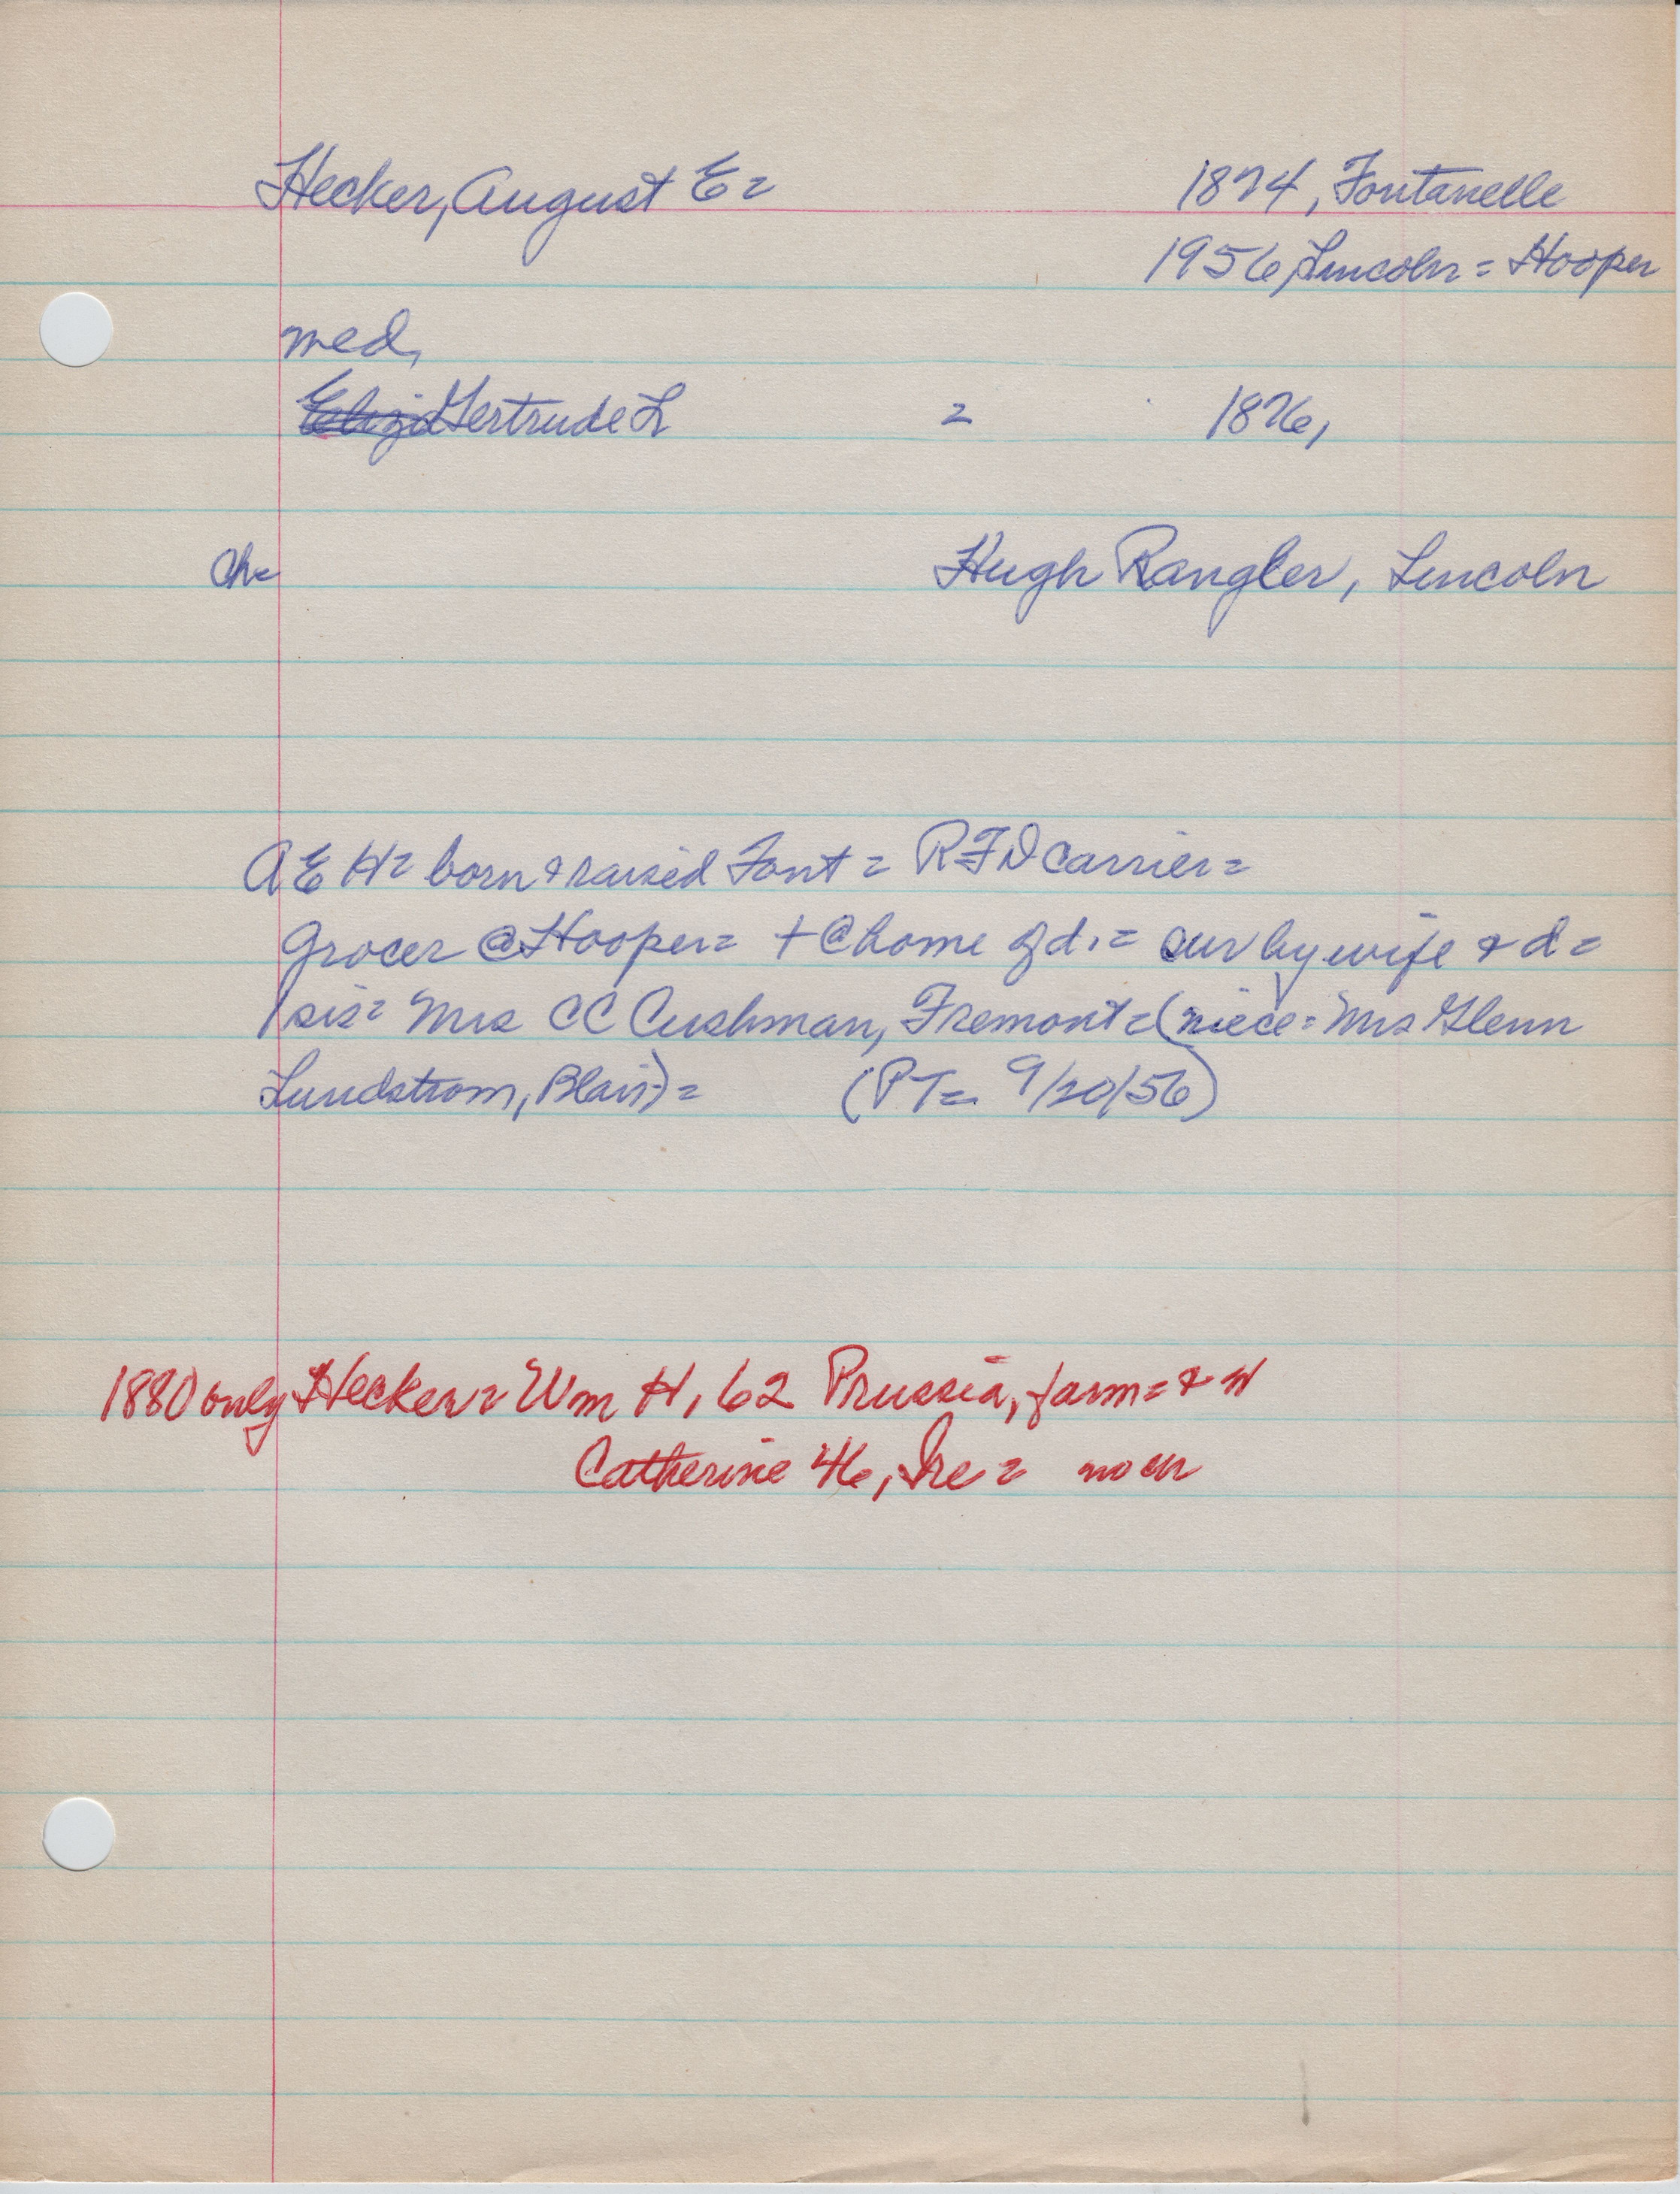 Hecker, August E = 1874, Fontanelle
1956, Lincoln = Hooper
med,
Eliza Gertrude L = 1876,
ch= Hugh Rangler, Lincoln
A E H = born & raised Font = RFD carrier =
Grocer @ Hooper = + @ home of d. = sur by wife & d =
1 sis = Mrs CC Cushman, Fremont = (niece = Mrs Glenn
Lundstrom, Blair) = (PT = 9/20/56)
1880 only Hecker = Wm H, 62 Prussia, farm = & w
Catherine 46, Ire = no ch